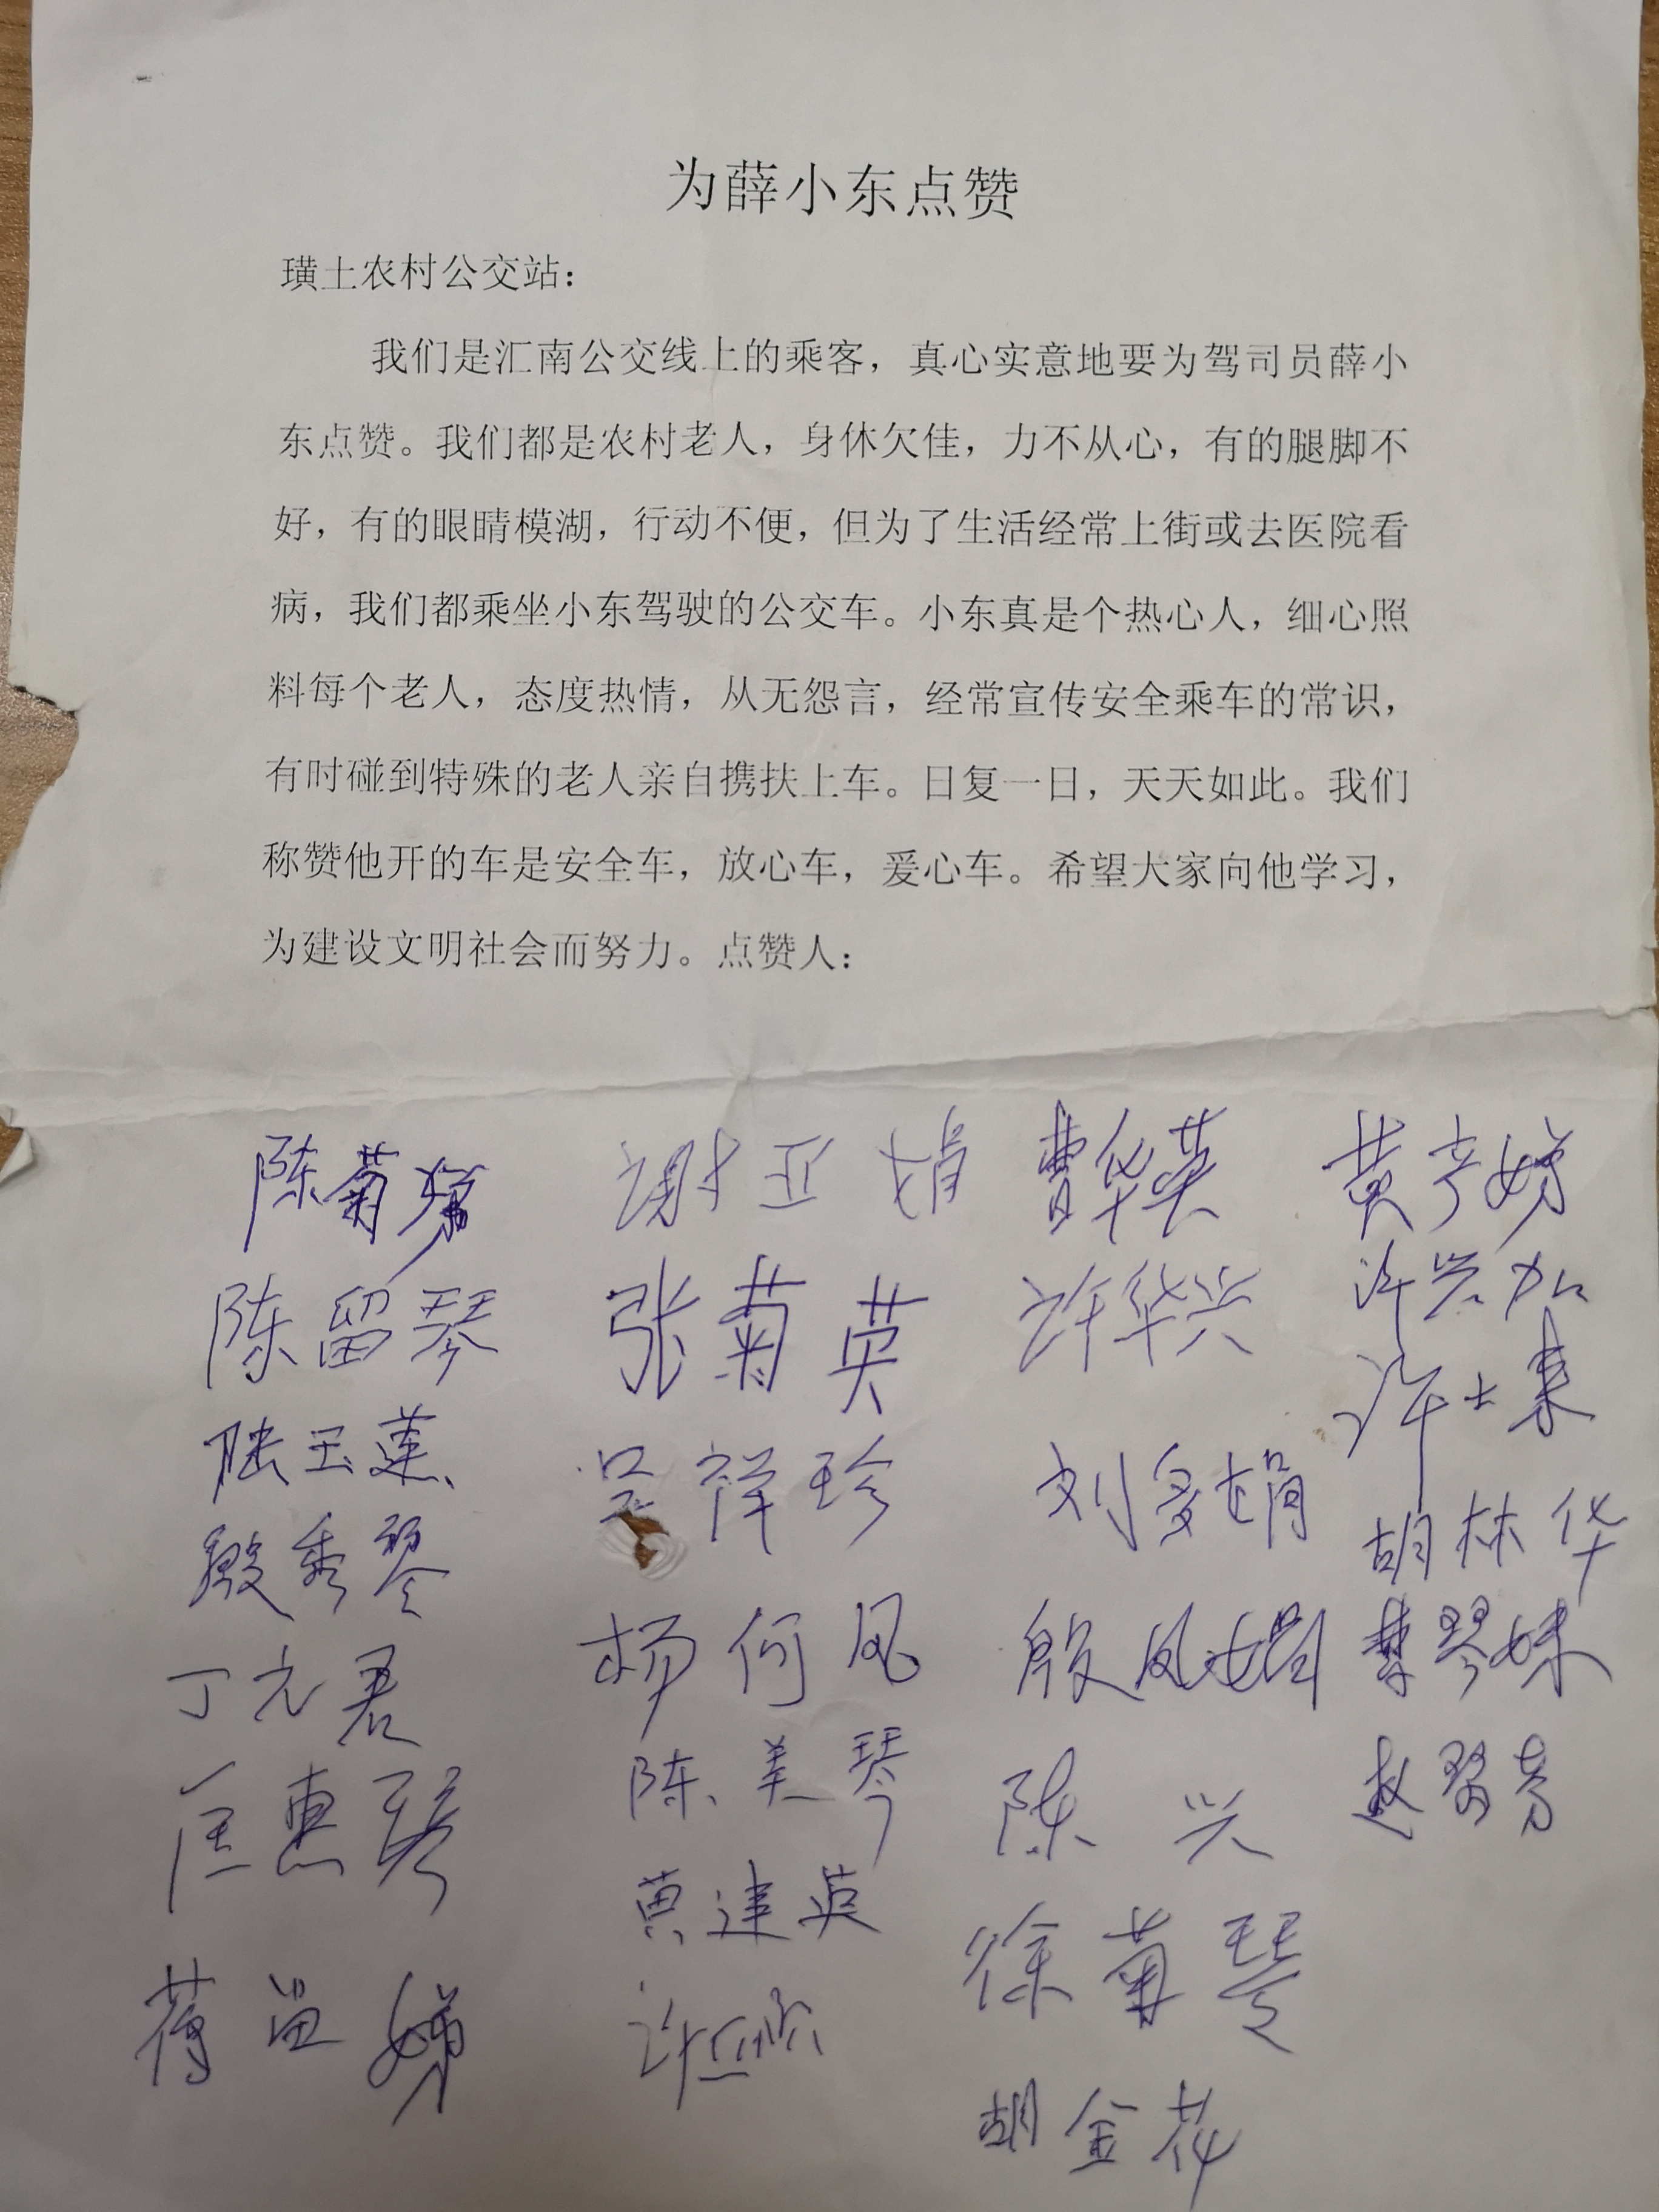 为薛小东点赞
璜土农村公交站：
我们是汇南公交线上的乘客，真心实意地要为驾司员薛小
东点赞。我们都是农村老人，身休欠佳，力不从心，有的腿脚不
好，有的眼睛模湖，行动不便，但为了生活经常上街或去医院看
病，我们都乘坐小东驾驶的公交车。小东真是个热心人，细心照
料每个老人，态度热情，从无怨言，经常宣传安全乘车的常识，
有时碰到特殊的老人亲自携扶上车。日复一日，天天如此。我们
称赞他开的车是安全车，放心车，爱心车。希望大家向他学习，
为建设文明社会而努力。点赞人：
陈菊娣
陈留琴
陆玉莲
殷秀琴
丁元君
匡惠琴
蒋苗娣
谢亚娟
张菊英
吴祥珍
杨何凤
陈美琴
黄建英
许
曹华英
许华兴
刘多娟
殷凤娟
陈兴
徐菊琴
胡金花
黄娣
许兴加
许士来
胡林华
曹琴妹
赵琴芳